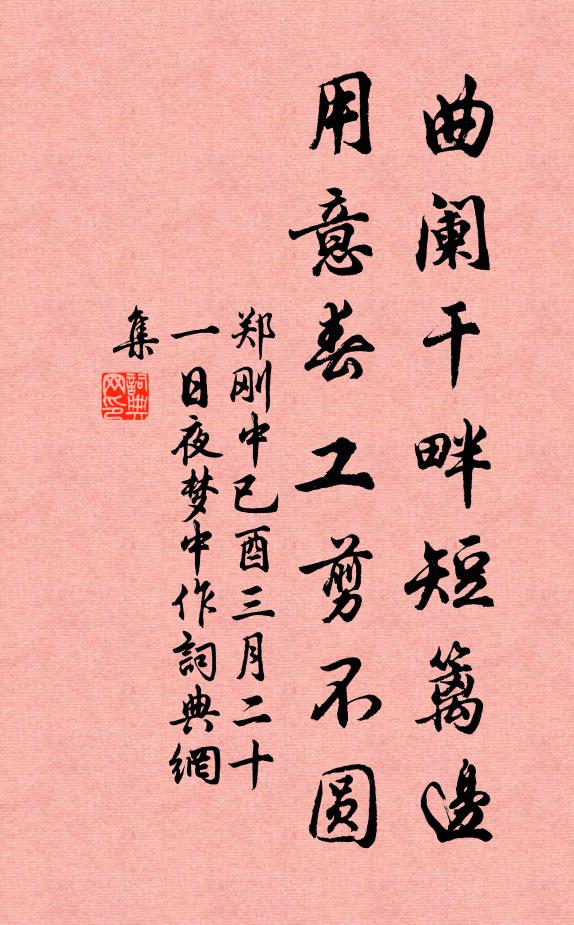 曲阑干畔短篱邊
用意春工剪不圆
郑刚中己酉三月二十
一日夜梦中作詞典網
集
詞典
网印